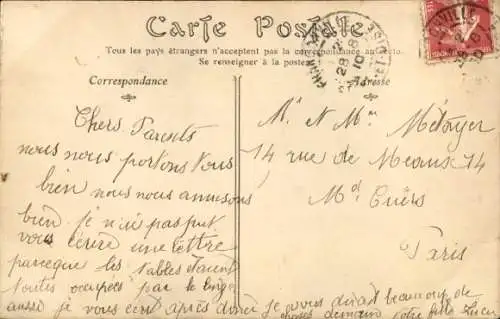 Carte Postale
Tous les pays étrangers n'acceptent pas la correspondance au recto
Se renseigner à la poste
Correspondance
Adresse
28 - 8
10
VILLE
Chers Parents
nous nous portons tous
bien nous nous amusons
bien je n'ai pas put
vous écrire une lettre
parceque les tables étaient
toutes occupées par le linge
aussi je vous écrit après diner je vous dirait beaucoup de
choses demain votre fille Lucie
Mr et Mme Métayer
14 rue de Meaux 14
Md Cuirs
Paris